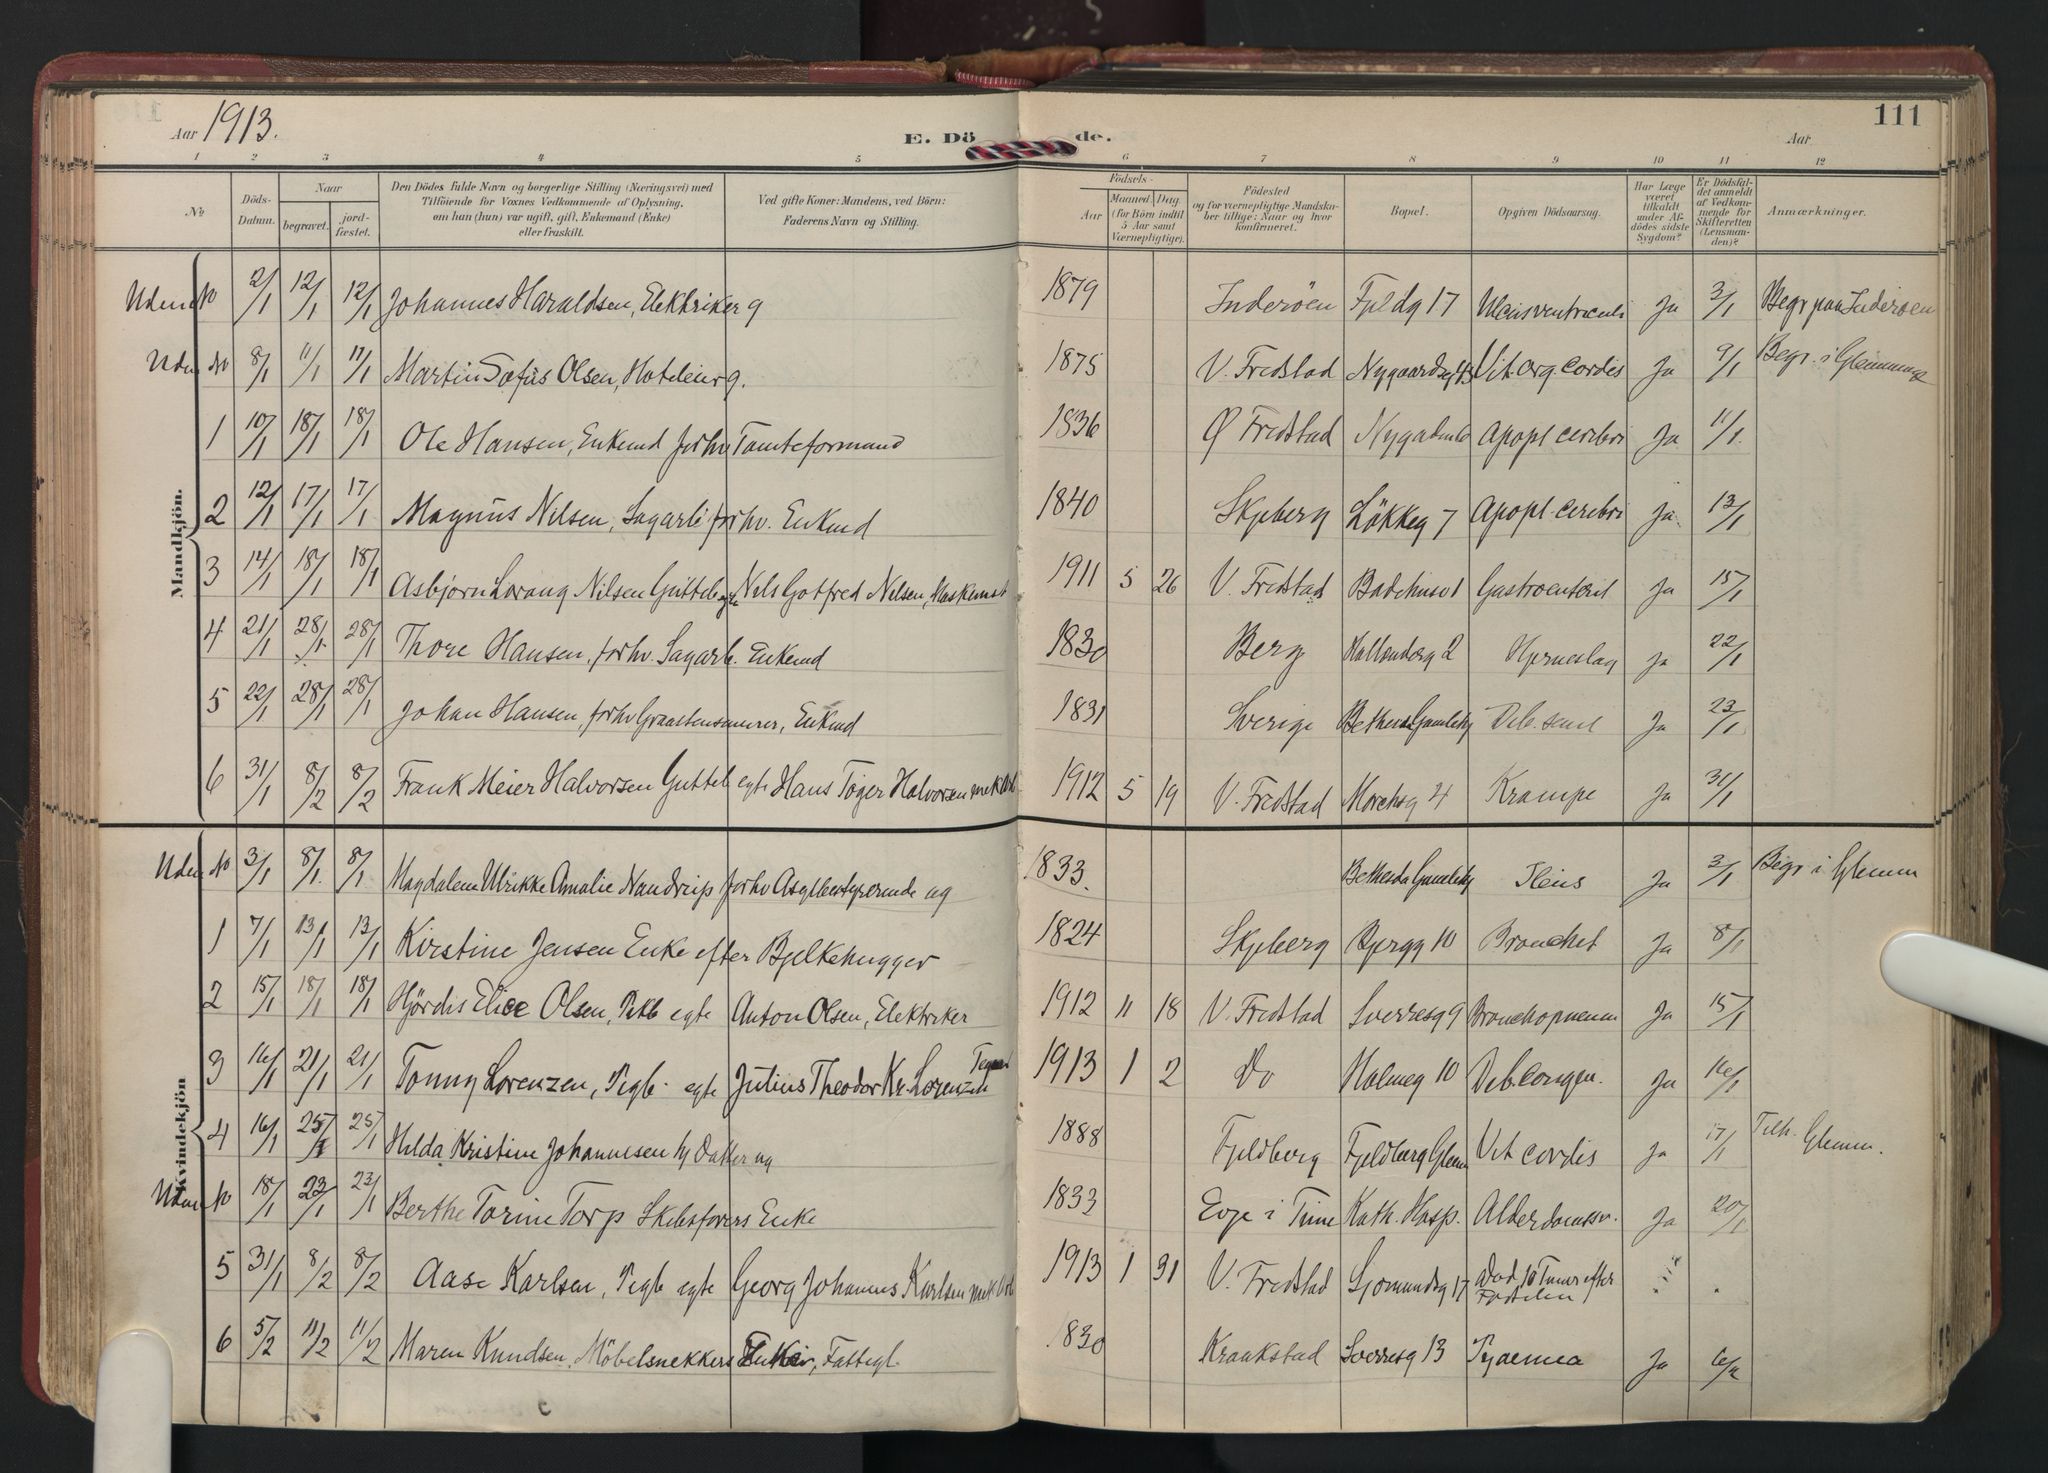 Aar 1913. E. Dö de. Aar 111
1 2 3 4 5 6 7 8 9 10 11 12
No Döds-Datum. Naar begravet. jordfæstet. Den Dödes fulde Navn og borgerlige Stilling (Næringsvei) med Tilföiende for Voxnes Vedkommende af Oplysning, om han (hun) var ugift, gift, Enkemand (Enke) eller fraskilt. Ved gifte Koner: Mandens, ved Börn: Faderens Navn og Stilling. Födsels- Aar Maaned. Dag. (for Börn indtil 5 Aar samt Værnepligtige). Födested og for værnepligtige Mandskaber tillige: Naar og hvor konfirmeret. Bopæl. Opgiven Dödsaarsag. Har Læge været tilkaldt under Afdödes sidste Sygdom? Er Dödsfaldet anmeldt af Vedkommende for Skifteretten (Lensmanden)? Anmærkninger.
Mandkjön.
Uden No 2/1 12/1 12/1 Johannes Haraldsen, Elektriker g 1879 Inderöen Fjeldg 17 Ulcus ventriculi Ja 3/1 Begr paa Inderöen
Uden No 8/1 11/1 11/1 Martin Sofus Olsen, Hoteleier g. 1875 V. Fredstad Nygaardsg 43 Vit. org. cordis Ja 9/1 Begr. i Glemminge
1 10/1 18/1 18/1 Ole Hansen, Enkemd forhv Tomteformand 1836 Ø Fredstad Apopl cerebri Ja 11/1.
2 12/1 17/1 17/1 Magnus Nilsen, Sagarb forhv. Enkemd 1840 Skjeberg Løkkeg 7 Apopl cerebri Ja 13/1
3 14/1 18/1 18/1 Asbjørn Lorang Nilsen Gutteb egte Nils Gotfred Nilsen, Maskinist 1911 5 26 V. Fredstad Badehusg 1 Gastroenterit Ja 15/1
4 21/1 28/1 28/1 Thore Hansen, forhv. Sagarb. Enkemd 1830 Berg 2 Hjerneslag ja 22/1
5 22/1 28/1 28/1 Johan Hansen, forhv Graastensmurer, Enkemd 1831 Sverige Bethesda Gamlehj Deb. senil Ja 23/1
6 31/1 8/2 8/2 Frank Meier Halvorsen Gutteb egte Hans Tøger Halvorsen mek Arb 1912 5 19 V. Fredstad Morchsg 4 Krampe Ja 31/1
Kvindekjön
Uden No 3/1 8/1. 8/1. Magdalene Ulrikke Amalie Nandrup forhv Asylbestyrerinde ug 1833. Bethesda Gamlehj Ileus Ja 3/1 Begr i Glemm
1 7/1 13/1 13/1 Kirstine Jensen Enke efter Bjelkehugger 1824 Skjeberg Bjergg 10 Bronchit Ja 8/1
2 15/1 18/1 18/1 Hjördis Elise Olsen, Pikb egte Anton Olsen, Elektriker 1912 11 18 V. Fredstad Sverresg 9 Bronchopneum Ja 15/1
3 16/1 21/1 21/1 Tonny Lorenzen, Pigb. egte Julius Theodor Kr. Lorenzen 1913 1 2 Do Holmeg 10 Deb. congen. Ja 16/1
4 16/1 25/1 25/1 Hilda Kristine Johannesen hj Datter ug 1888 Fjeldberg Fjeldberg Glem Vit cordis Ja 17/1 Tilh. Glemm.
Uden No 18/1 23/1 23/1 Berthe Torine Torp Skibsførers Enke 1833 Evje i Kath. Hosp. Alderdomssv. Ja 20/1
5 31/1 8/2 8/2 Aase Karlsen, Pigb egte Georg Johannes Karlsen mek Arb 1913 1 31 V. Fredstad Gjomundsg 17 Død 10 Timer efter Fødselen
6 5/2 11/2 11/2 Maren Knudsen, Möbelsnekkers Enke, Fattigl. 1830 Kraakstad Sverresg 13 Pyaemia Ja 6/2